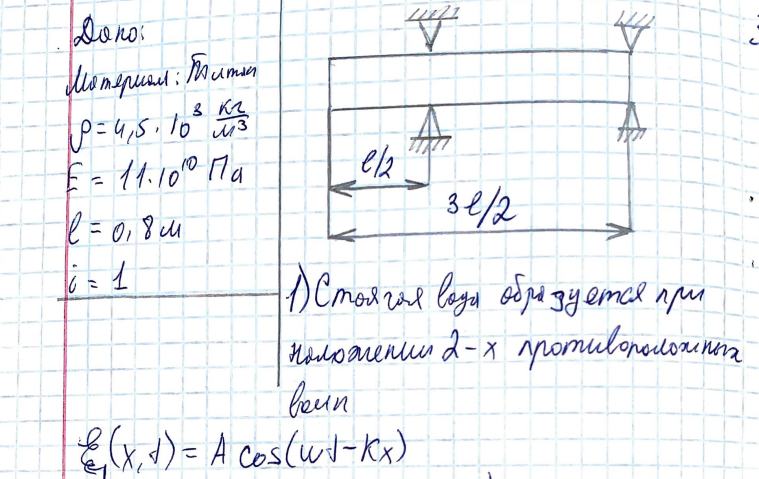 Дано:
Материал: Титан
ρ = 4,5 · 10³ кг/м³
E = 11·10¹⁰ Па
l = 0,8 м
i = 1
l/2
3l/2
1) Стоячая волна образуется при
наложении 2-х противоположных
волн
ξ₁(x,t) = A cos(ωt - kx)